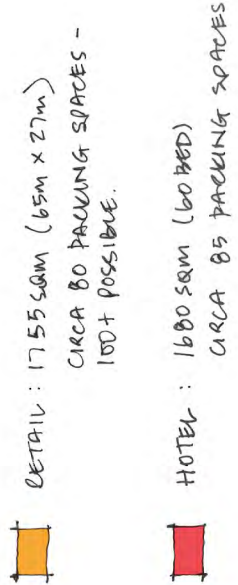 RETAIL : 1755 SQM (65M X 27M)
CIRCA 80 PARKING SPACES -
100+ POSSIBLE.
HOTEL : 1680 SQM (60 BED)
CIRCA 85 PARKING SPACES